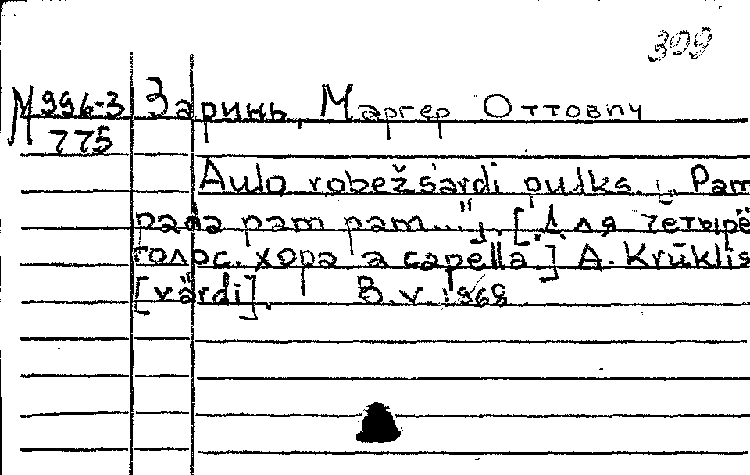 309
М 996-3 Заринь, Маргер Оттович
775
Aulo robežsardi pulks. „Pam
рада pam pam..."; [Для четырё
голос. хора a capella] A. Krūklis
[vārdi]. B.v. 1968